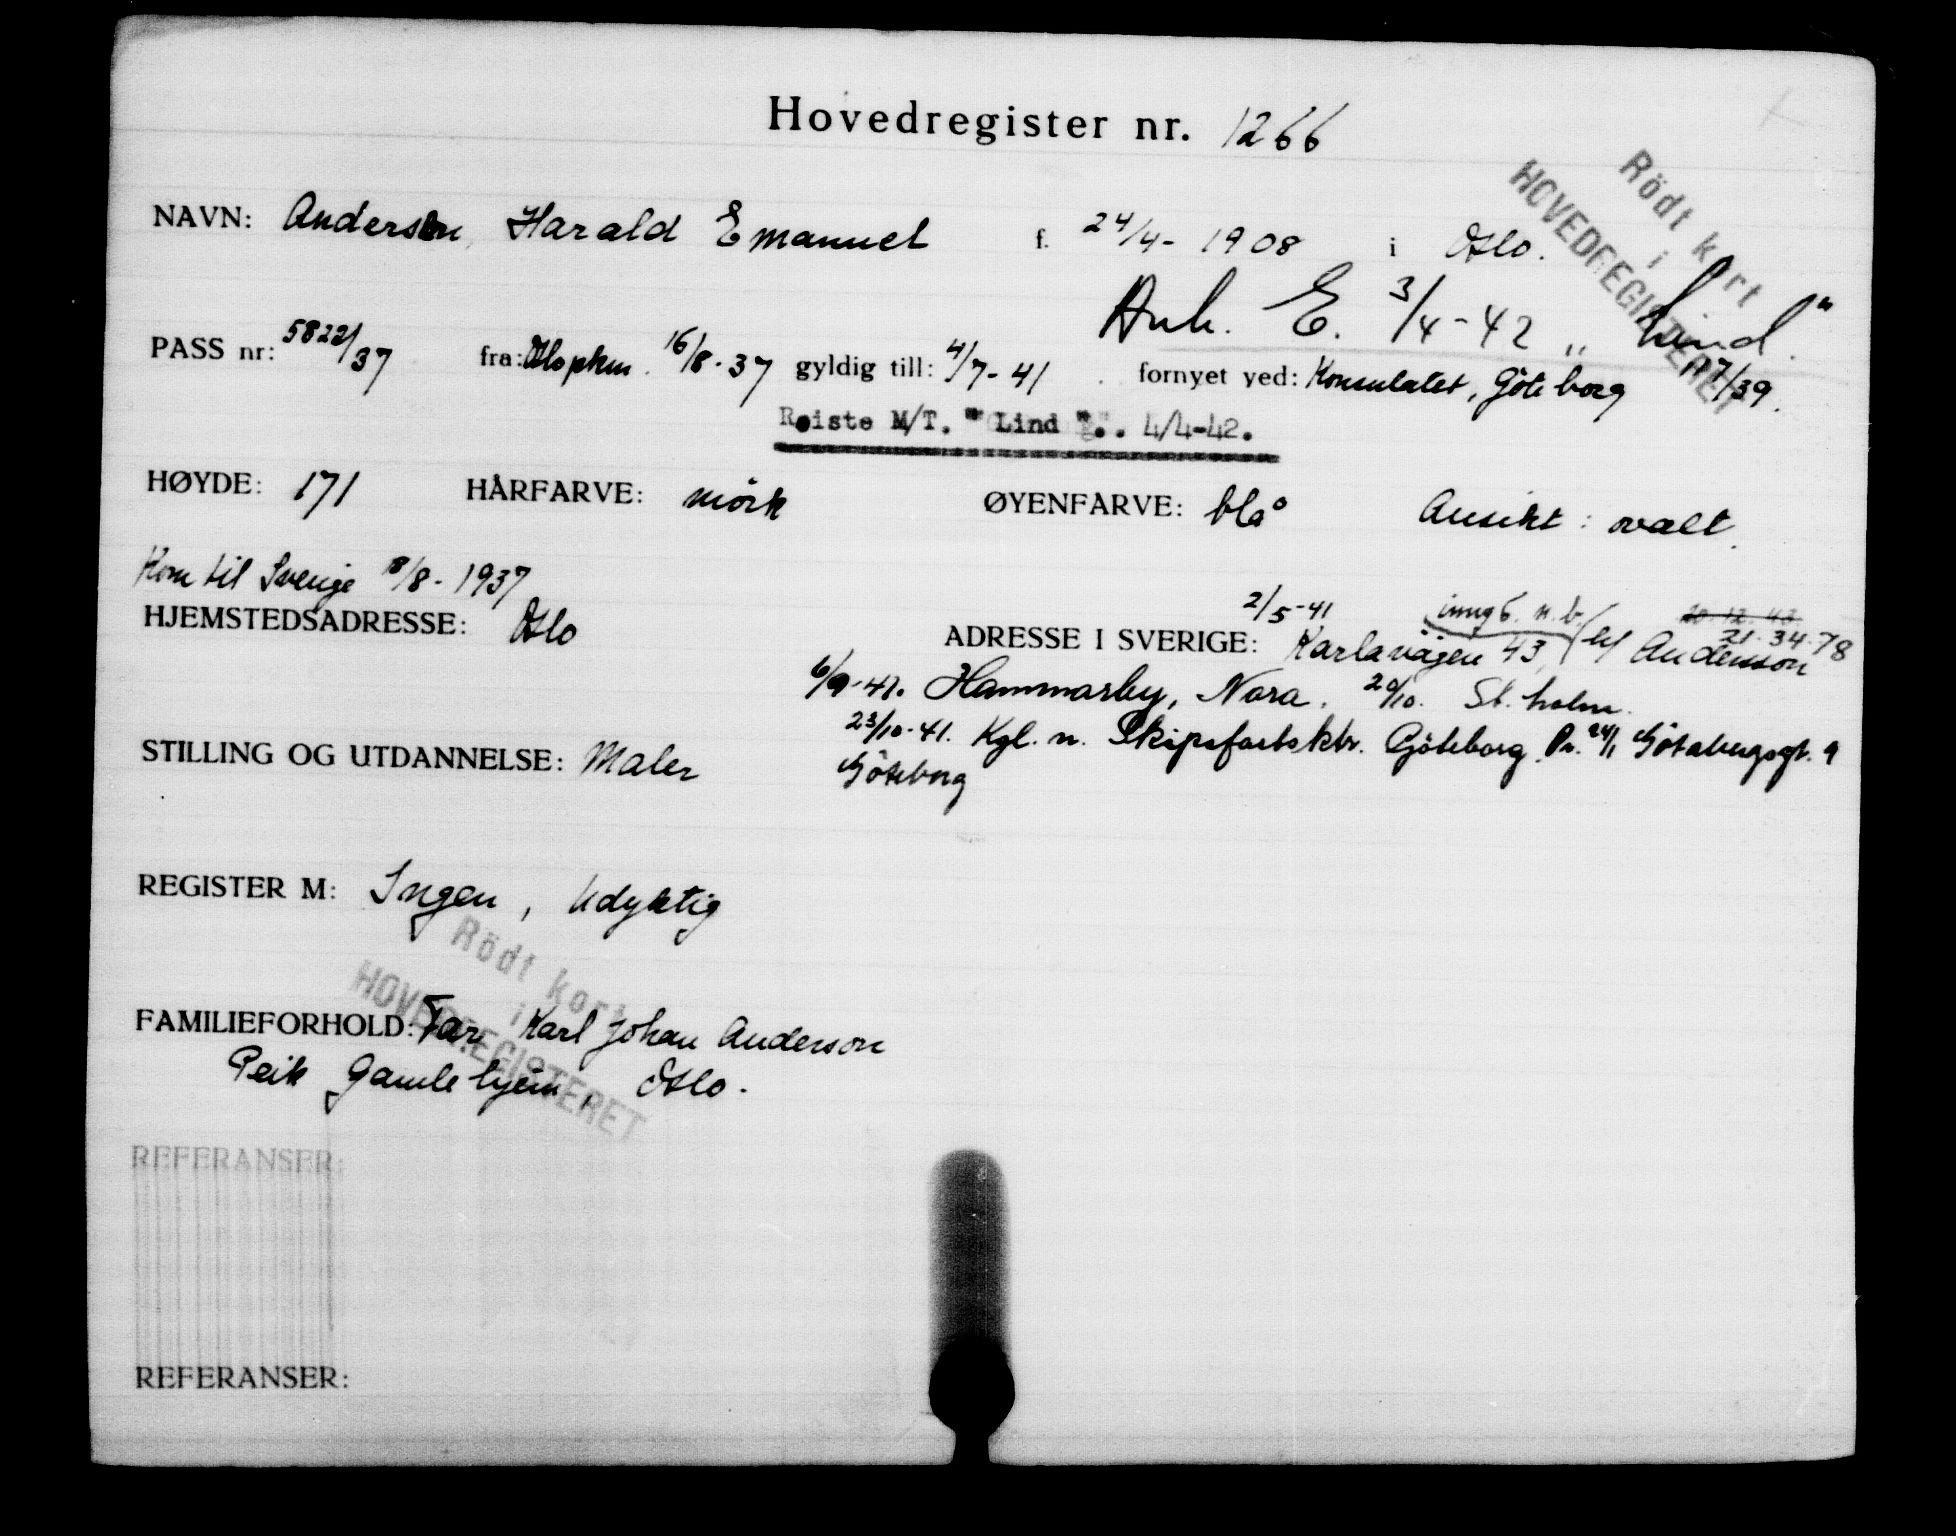 Hovedregister nr. 1266
Rödt kort
i
HOVEDREGISTERET
NAVN: Andersen, Harald Emanuel f. 24/4- 1908 i Oslo.
Ank. E. 3/4-42 „Lind“.
PASS nr: 5822/37 fra: Oslopkm. 16/8-37 gyldig till: 4/7-41 fornyet ved: Konsulatet, Göteborg /39.
Reiste M/T. " Lind ". 4/4-42.
HØYDE: 171 HÅRFARVE: mörk ØYENFARVE: blå Ansikt: ovalt.
Kom til Sverige 18/8-1937
HJEMSTEDSADRESSE: Oslo
2/5-41 inng 6. n. b. 20.12.43
21.34.78
ADRESSE I SVERIGE: Karlavägen 43, Andersson
6/9-41. Hammarby, Nora. 20/10. St.holm.
23/10-41. Kgl. n. Skipsfartsktr. Göteborg. Pr. 24/1 Götabergsgt. 9
Göteborg
STILLING OG UTDANNELSE: Maler
REGISTER M: Ingen, Udyktig
Rödt kort
i
HOVEDREGISTERET
FAMILIEFORHOLD: Far, Karl Johan Anderson
Peik Gamlehjem, Oslo.
REFERANSER:
REFERANSER: